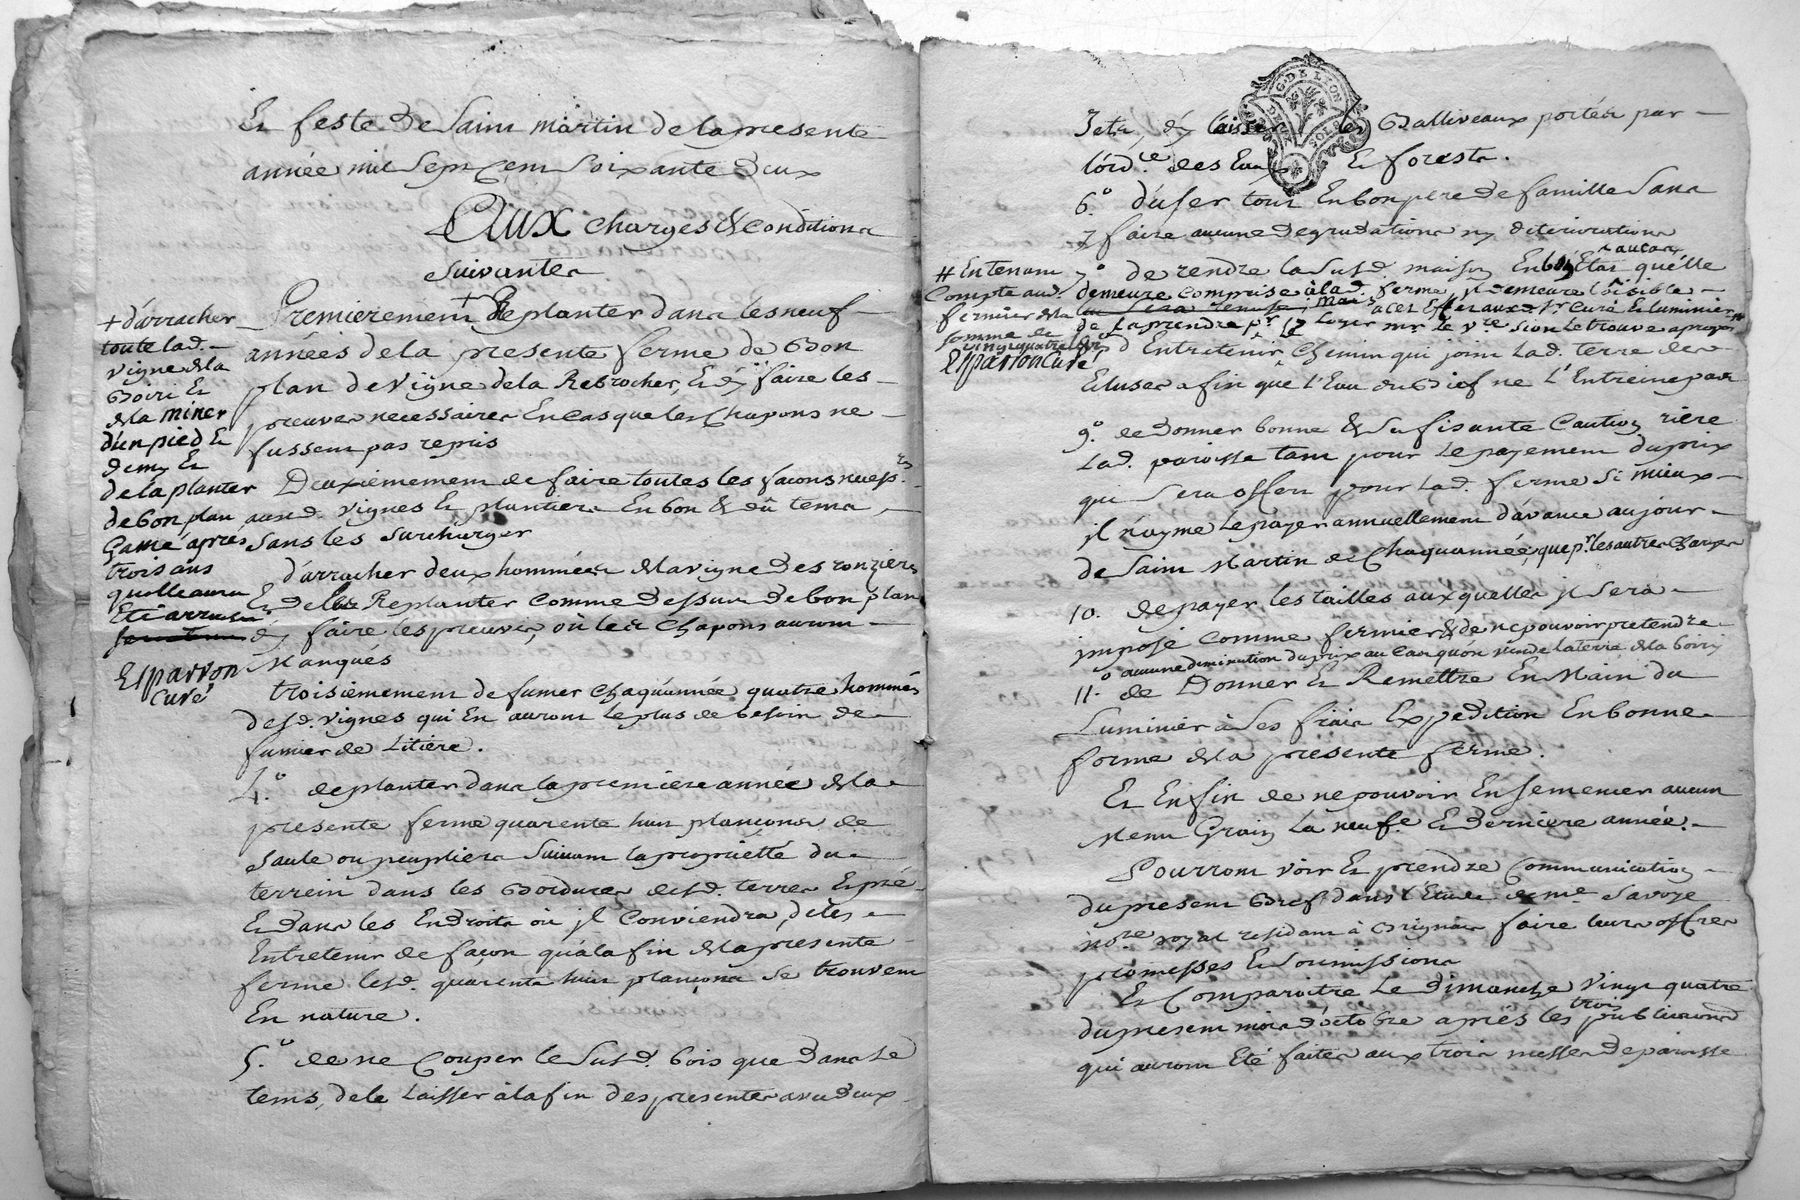 Et feste de Saint martin de la presente
année mil sept Cent Soixante deux
Aux charges & Conditions
Suivantes
Premierement + de planter dans les neuf
années de la presente ferme de Bon
plan de vigne de la Rebrocher, & dy faire les
preuves necessaires En cas que les Chapons ne
fussent pas repris
Deuxiemement de faire toutes les façons necess.res
auxd. vignes Et plantiers En bon & dû tems
sans les surcharger
d'arracher deux hommées de la vigne des ronzieres
Et de les Replanter comme dessus de bon plan
dy faire les preuves, où les Chapons auront
Manqués
troisiemement de fumer Chaqu'année quatre hommés
desd. vignes qui En auront le plus de besoin de
fumier de Litiere.
4.° de planter dans la premiere année de la
presente ferme quarente huit plançons de
Saule ou peupliers Suivant la proprietté du
terrein dans les Bordures desd. terres Et pré
Et dans les Endroits où jl Conviendra, de les
Entretenir de façon qu'à la fin de la presente
ferme lesd. quarente huit plançons se trouvent
En nature.
5.° de ne Couper le Susd. bois que dans le
tems, de le Laisser à la fin des presentes avec deux
+ d'arracher
toute lad.
vigne de la
Boiri Et
de la miner
d'un pied Et
demy Et
de la planter
de bon plan
Gamé après
trois ans
qu'elle aura
Eté arrachée
Esparron
Curé
G. DE LYON
DEUX SOLS
Jets, dy laisser les Balliveaux portés par
l'ord.ce des Eaux Et forests.
6.° d'user tout En bon pere de famille Sans
y faire aucune degradations ny deteriorations
7.° de rendre la Susd. maison En bon Etat qu'elle
au cas
demeure comprise à lad. ferme, jl demeure Loisible
mais à cet Effet auxd. Sr. Curé Et luminier
de La prendre pr. y Loger mr. Le v.re sion Le trouve apropos
d'Entretenir Chemin qui joint Lad. terre des
Ecluses afin que L'Eau du Bief ne L'Entreine pas
9.° de donner bonne & Sufisante Caution riere
Lad. paroisse tant pour Le payement du prix
qui Sera offert pour Lad. ferme Si mieux
jl n'ayme Le payer annuellement d'avance au jour
de Saint Martin de Chaqu'année, que pr. les autres Charges
10. de payer les tailles auxquelles jl sera
imposé Comme fermier & de ne pouvoir pretendre
aucune diminution du prix au Cas qu'on vende la terre de la boiry
11.° de Donner Et Remettre En Main du
Luminier à Ses frais Expedition En bonne
forme de la presente ferme.
Et Enfin de ne pouvoir Ensemencer aucun
Menu Grain La neuf.e Et derniere année.
Pourront voir Et prendre Communication
du present Bref dans l'Etude de me. Savoye
no.re royal residant à Brignais faire leurs offres
promesses Et Soumissions
Et Comparoitre Le dimanche vingt quatre
du present mois d'octobre après les trois publications
qui auront Eté faites aux trois messes de paroisse
# En tenant
Compte aud.
fermier de la
somme de
vingt quatre livres
Esparron Curé